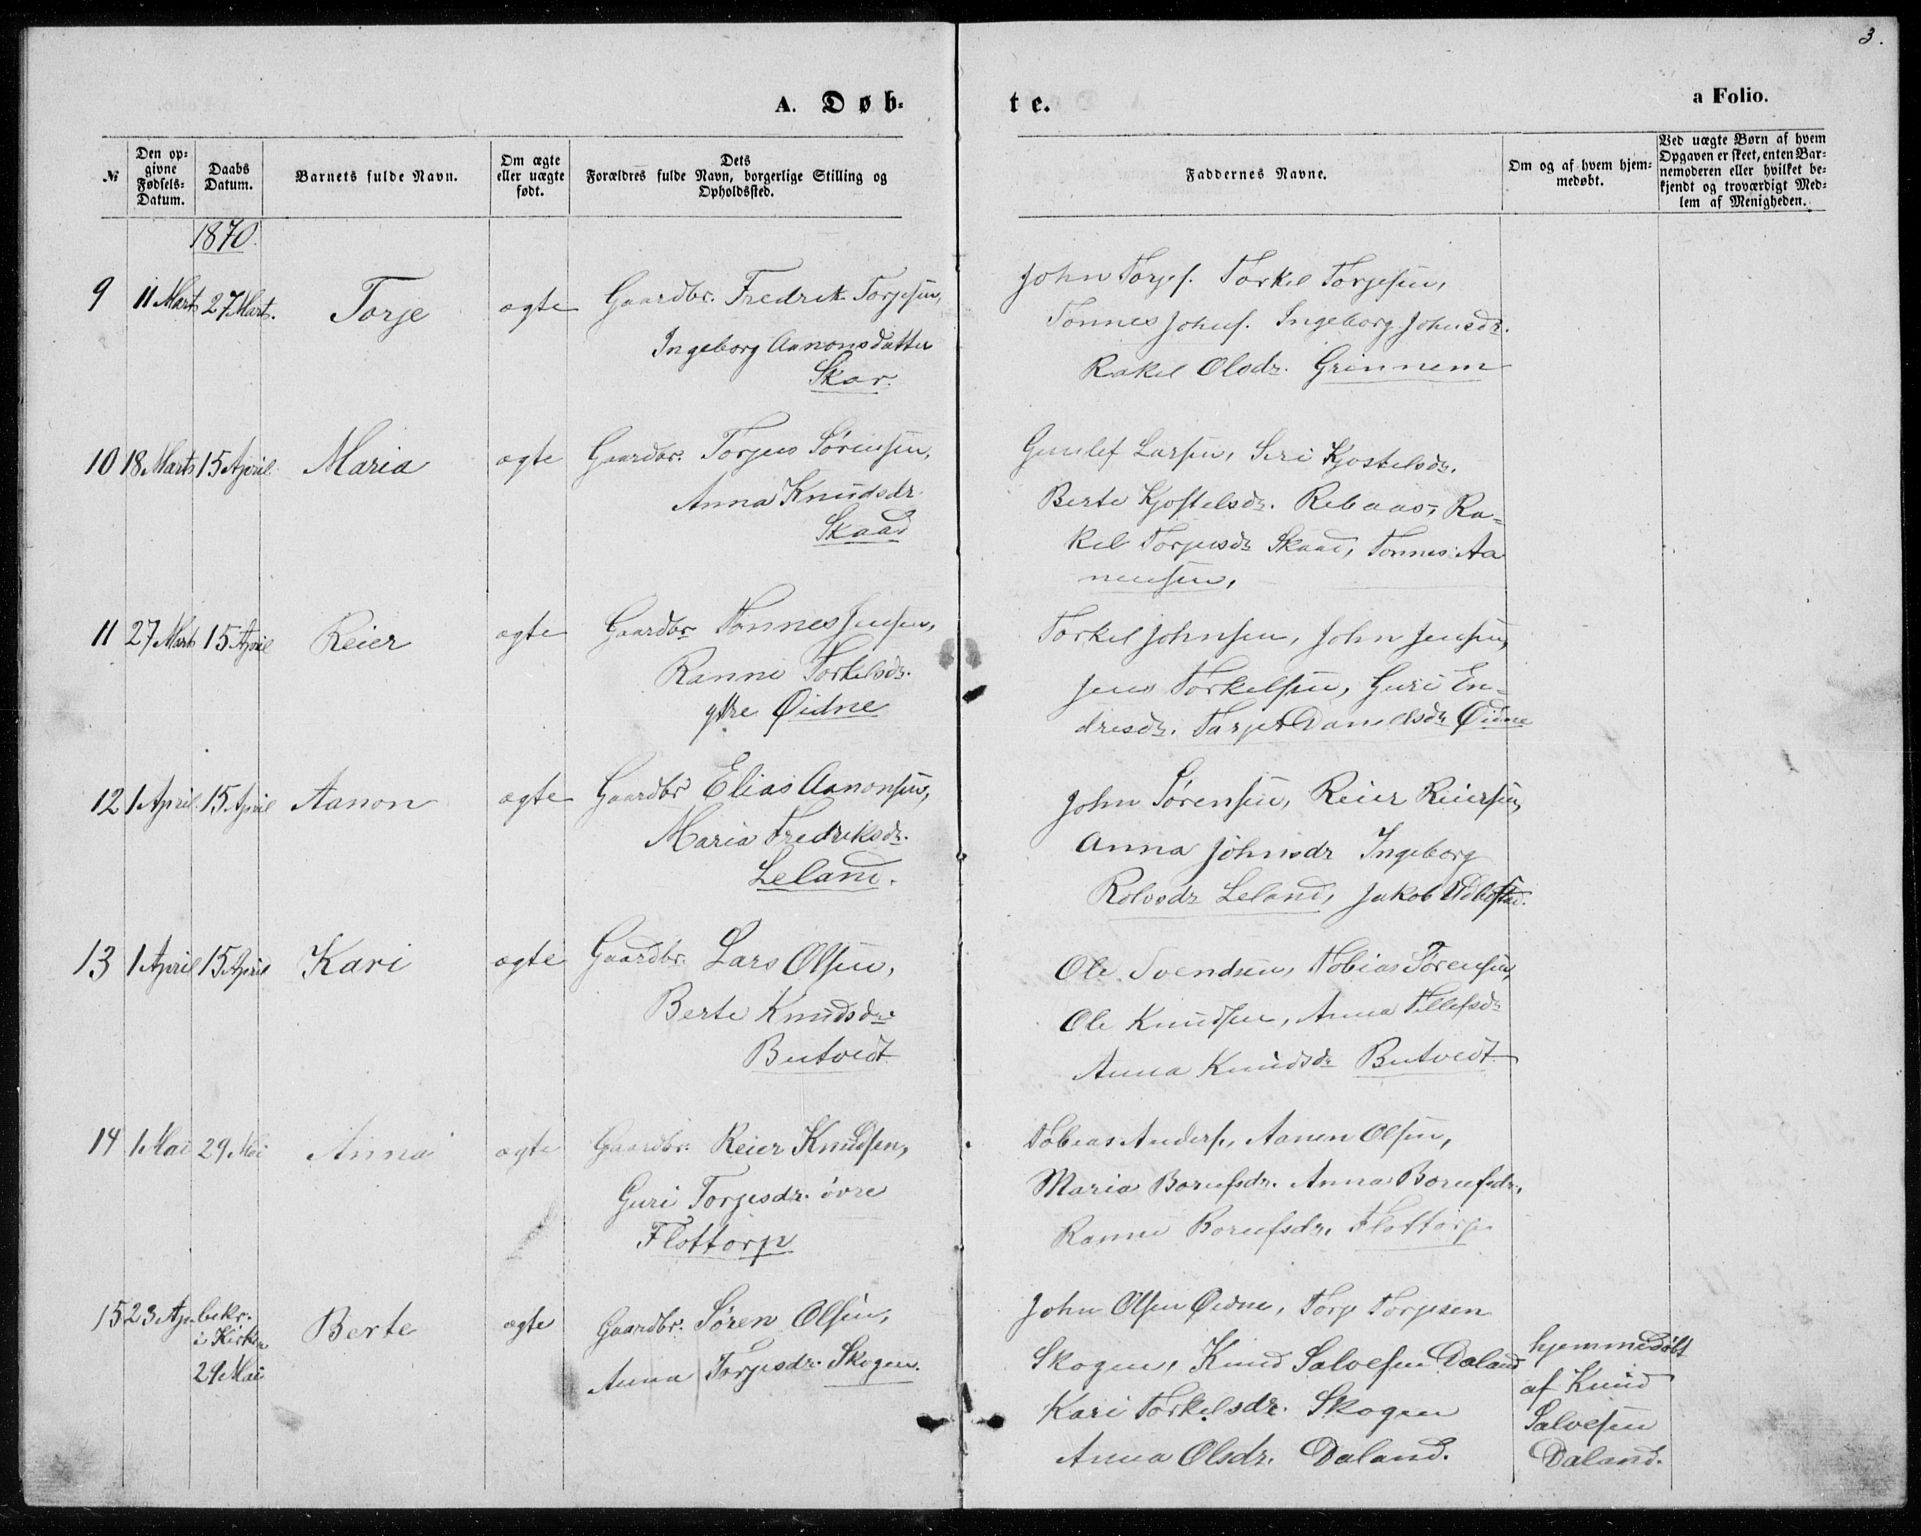 3.
A. Døb-
te.
a Folio.
№
Den op-
givne
Fødsels-
Datum.
Daabs
Datum.
Barnets fulde Navn.
Om ægte
eller uægte
født.
Dets
Forældres fulde Navn, borgerlige Stilling og
Opholdssted.
Faddernes Navne.
Om og af hvem hjem-
medøbt.
Ved uægte Børn af hvem
Opgaven er skeet, enten Bar-
nemoderen eller hvilket be-
kjendt og troværdigt Med-
lem af Menigheden.
1870.
9 11 Marts 27 Mart. Torje ægte Gaardbr. Fredrik Torjesen,
Ingeborg Aanonsdatter
Skar.
John Torjes. Torkel Torjesen,
Tønnes Johns. Ingeborg Johnsdr.
Rakel Olsdr. Grinnem
10 18 Marts 15 April Maria ægte Gaardbr. Torjus Sørensen,
Anna Knudsdr
Skaad
Gunlef Larsen, Siri Kjøstelsdr.
Berte Kjøstelsdr. Rebaas, Ra-
kel Torjusdr Skaad, Tønnes Aa
nensen,
11 27 Marts 15 April Reier ægte Gaardbr Tønnes Jensen,
Ranni Torkelsdr.
ytre Øidne
Torkel Johnsen, John Jensen,
Jens Torkelsen, Guri En-
dresdr. Torjer Danielsdr Øidne
12 1 April 15 April Aanon ægte Gaardbr Elias Aanonsen,
Maria Fredriksdr.
Leland.
John Sørensen, Reier Reiersen,
Anna Johnsdr Ingeborg
Rolvsdr Leland, Jakob
13 1 April 15 April Kari ægte Gaardbr. Lars Olsen,
Berte Knudsdr.
Butvedt
Ole Svendsen, Tobias Sørensen,
Ole Knudsen, Anna Tellefsdr
Anna Knudsdr Butvedt
14 1 Mai 29 Mai Anna ægte Gaardbr. Reier Knudsen,
Guri Torjesdr. øvre
Flottorp
Tobias Anders., Aanen Olsen,
Maria Borufsdr. Anna Borufsdr.
Ranni Borufsdr. Flottorp
15 23 Ap. bekr.
i Kirken
29 Mai
Berte ægte Gaardbr. Søren Olsen,
Anna Torjesdr. Skogen.
John Olsen Øidne, Torje Torjesen
Skogen, Knud Salvesen Daland
Kari Torkelsdr. Skogen
Anna Olsdr. Daland.
hjemmedøbt
af Knud
Salvesen
Daland.